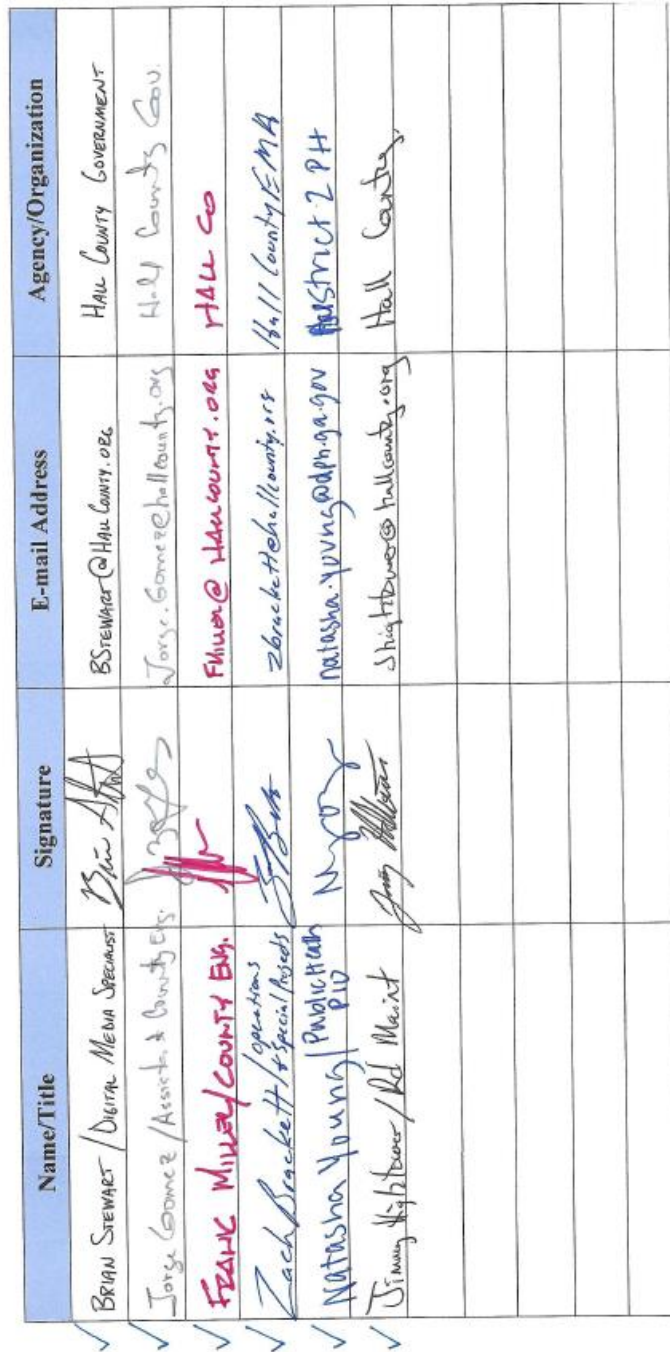 Name/Title Signature E-mail Address Agency/Organization
BRIAN STEWART / DIGITAL MEDIA SPECIALIST BSTEWART@HALLCOUNTY.ORG HALL COUNTY GOVERNMENT
Jorge Gomez / Assistant County Eng. Jorge.Gomez@hallcounty.org Hall County Gov.
FRANK MILLER/COUNTY ENG. FMILLER@HALLCOUNTY.ORG HALL CO
Zach Brackett / operations + special projects zbrackett@hallcounty.org Hall County EMA
Natasha Young / Public Health PIO natasha.young@dph.ga.gov District 2 PH
Jimmy Hightower / Rd Maint jhightower@hallcounty.org Hall County